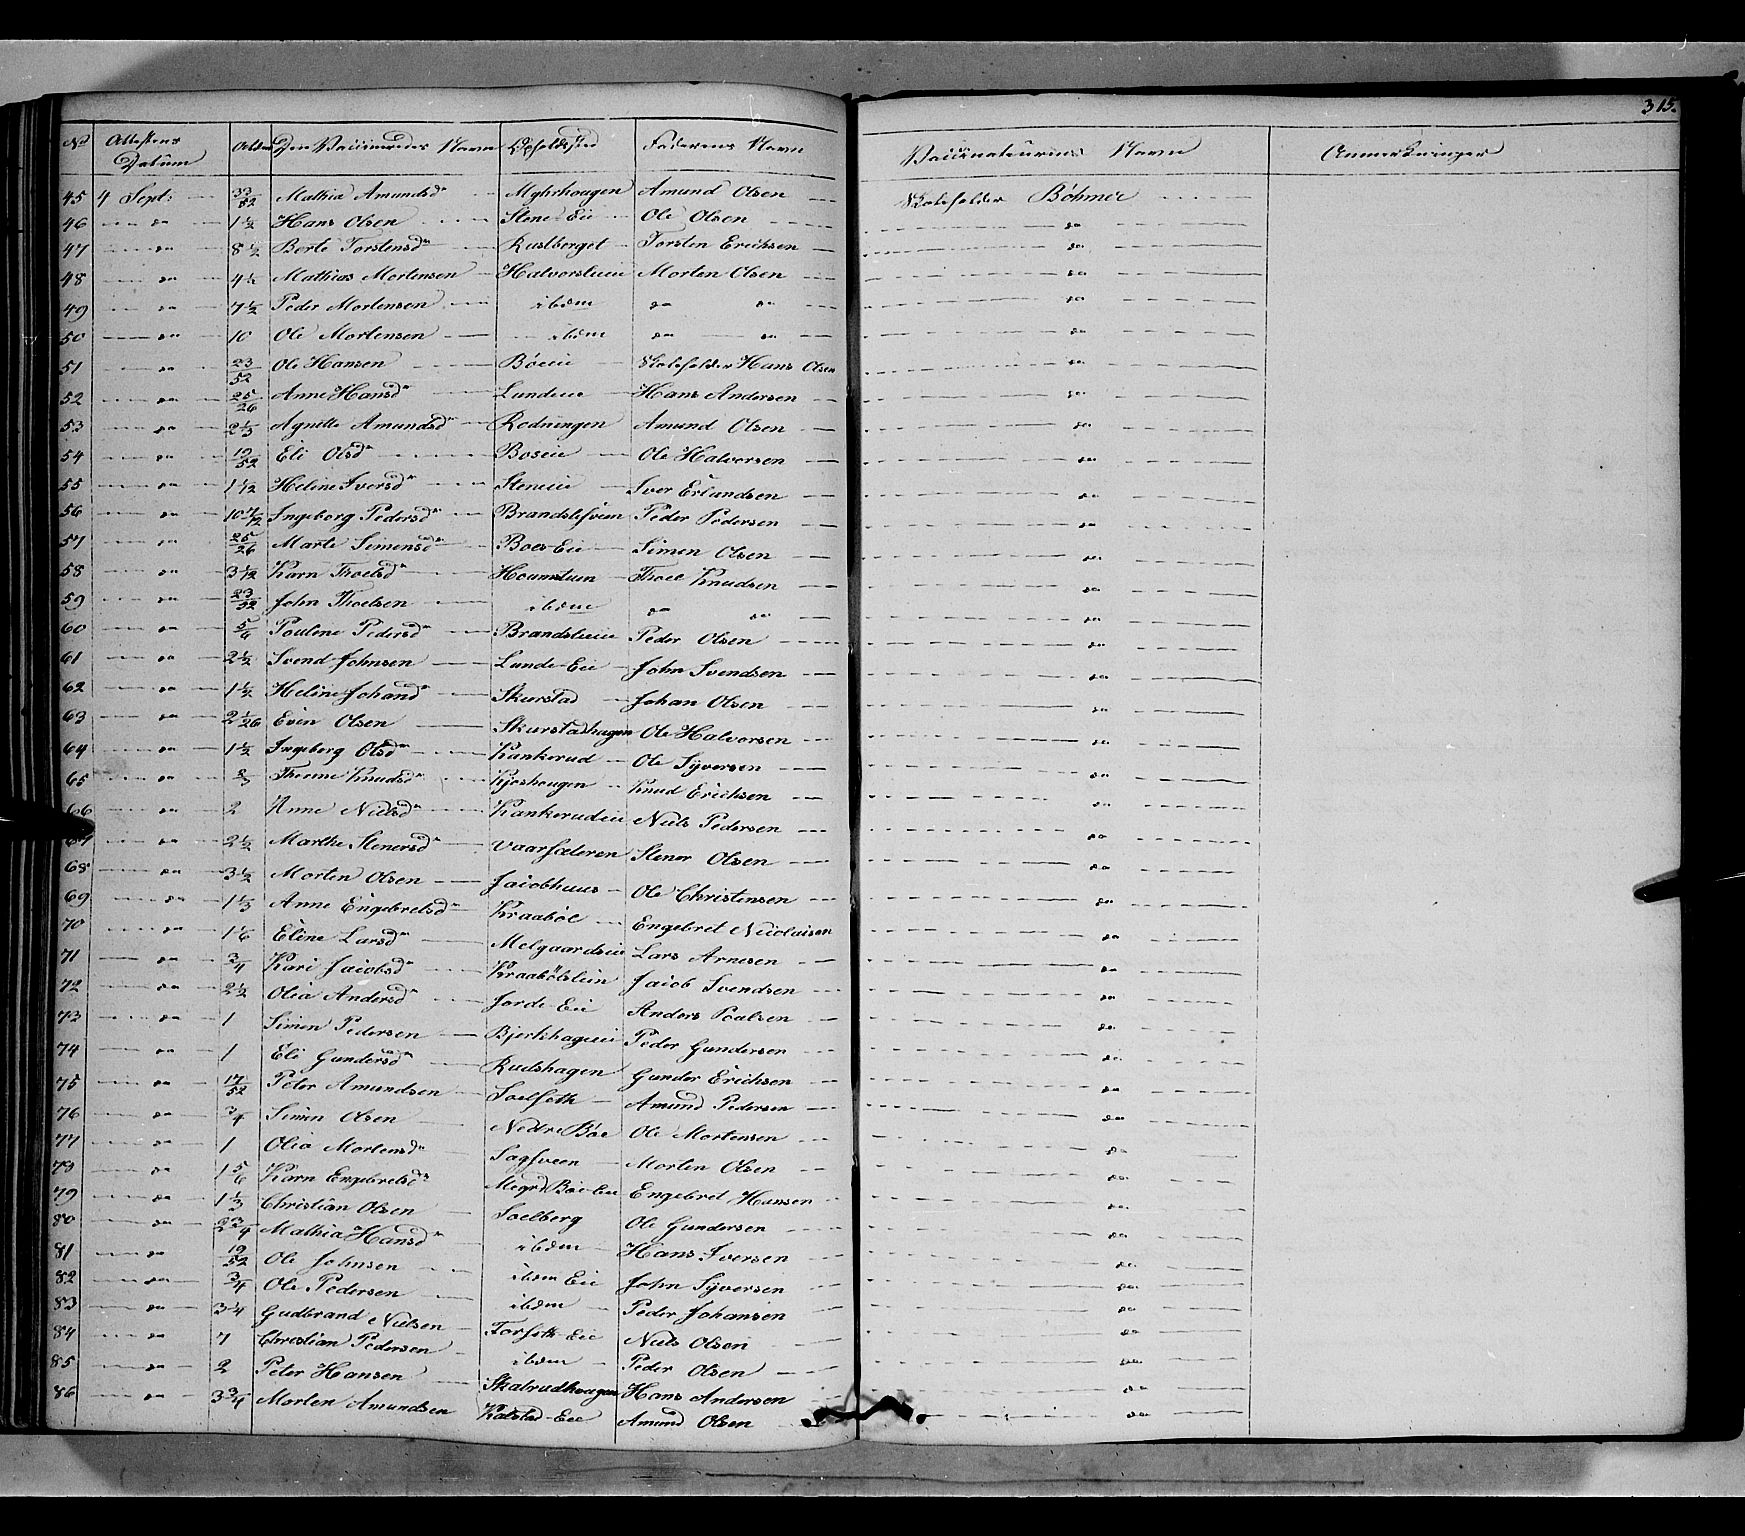 315.
No Attestens Datum Alder Den Vaccineredes Navn Opholdssted Faderens Navn Vaccinateurens Navn Anmerkninger
45 4 Sept: 33/52 Mathia Amundsdr Myhrhaugen Amund Olsen Skoleholder Böhmer
46 — do — 1 1/2 Hans Olsen Stens Eie Ole Olsen do
47 — do — 8 1/2 Berte Torstensdr Rustberget Torsten Erichsen do
48 — do — 4 1/2 Mathias Mortensen Halvorsleiie Morten Olsen do
49 — do — 7 1/2 Peder Mortensen ibdm do do do
50 — do — 10 Ole Mortensen ibdm do do do
51 — do — 23/52 Ole Hansen Böeiie Skoleholder Hans Olsen do
52 — do — 25/26 Anne Hansdr Lundeiie Hans Andersen do
53 — do — 2 1/3 Agnethe Amundsdr Rodningen Amund Olsen do
54 — do — 19/52 Eli Olsdr Boseiie Ole Halvorsen do
55 — do — 1 1/12 Heline Iversdr Steneiie Iver Erlandsen do
56 — do — Ingeborg Pedersdr Peder Pedersen do
57 — do — 25/26 Marte Simensdr Boes Eie Simen Olsen do
58 — do — 3 1/12 Karn Thoelsdr Thoel Knudsen do
59 — do — 23/52 John Thoelsen ibdm do do do
60 — do — Pouline Pedersdr Brandsleiie Peder Olsen do
61 — do — 2 1/2 Svend Johnsen Lunde Eie John Svendsen do
62 — do — 1 1/2 Heline Johansdr Skurstad Johan Olsen do
63 — do — 2 1/26 Even Olsen Skurstadhagen Ole Halvorsen do
64 — do — 1 1/2 Ingeborg Olsdr Kankerud Ole Syversen do
65 — do — Knudsdr Kjoshaugen Knud Erichsen do
66 — do — 2 Anne Nielsdr Kankerudeie Niels Pedersen do
67 — do — 2 1/2 Marthe Stenersdr Vaarsæteren Stener Olsen do
68 — do — 3 1/2 Morten Olsen Jacobhuus Ole Christensen do
69 — do — 1 1/3 Anne Engebretsdr Kraaböl Engebret Nicolaisen do
70 — do — 1 1/6 Eline Larsdr Melgaardseie Lars Arnesen do
71 — do — 3/4 Kari Jacobsdr Kraabölsleiie Jacob Svendsen do
72 — do — 2 1/2 Olea Andersdr Jorde Eie Anders Poulsen do
73 — do — 1 Simen Pedersen Bjerkehageiie Peder Gundersen do
74 — do — 1 Eli Gundersdr Rudshagen Gunder Erichsen do
75 — do — 17/52 Peter Amundsen Soelseth Amund Pedersen do
76 — do — 3/4 Simen Olsen Nedre Böe Ole Mortensen do
77 — do — 1 Olea Mortensdr Sagsveen Morten Olsen do
79 — do — 1 5/6 Karn Engebretsdr Engebret Hansen do
79 — do — 1 1/3 Christian Olsen Soelberg Ole Gundersen do
80 — do — 2 3/4 Mathia Hansdr ibdm Hans Iversen do
81 — do — 19/52 Ole Johnsen ibdm Eie John Syversen do
82 — do — 3/4 Ole Pedersen ibdm Peder Johansen do
83 — do — 3 1/4 Gudbrand Nielsen Forseth Eie Niels Olsen do
84 — do — 7 Christian Pedersen ibdm Peder Olsen do
85 — do — 2 Peter Hansen Skalrudhaugen Hans Andersen do
86 — do — 3 3/4 Morten Amundsen Kalstad Eie Amund Olsen do